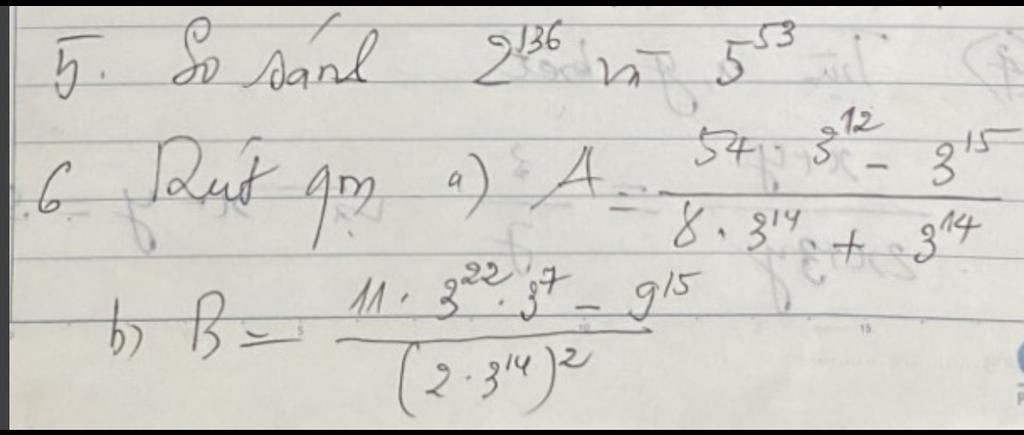 5. So sánh 2^136 và 5^53
6 Rút gọn a) A = (54 · 3^12 - 3^15) / (8 · 3^14 + 3^14)
b) B = (11 · 3^22 · 3^7 - 9^15) / (2 · 3^14)^2